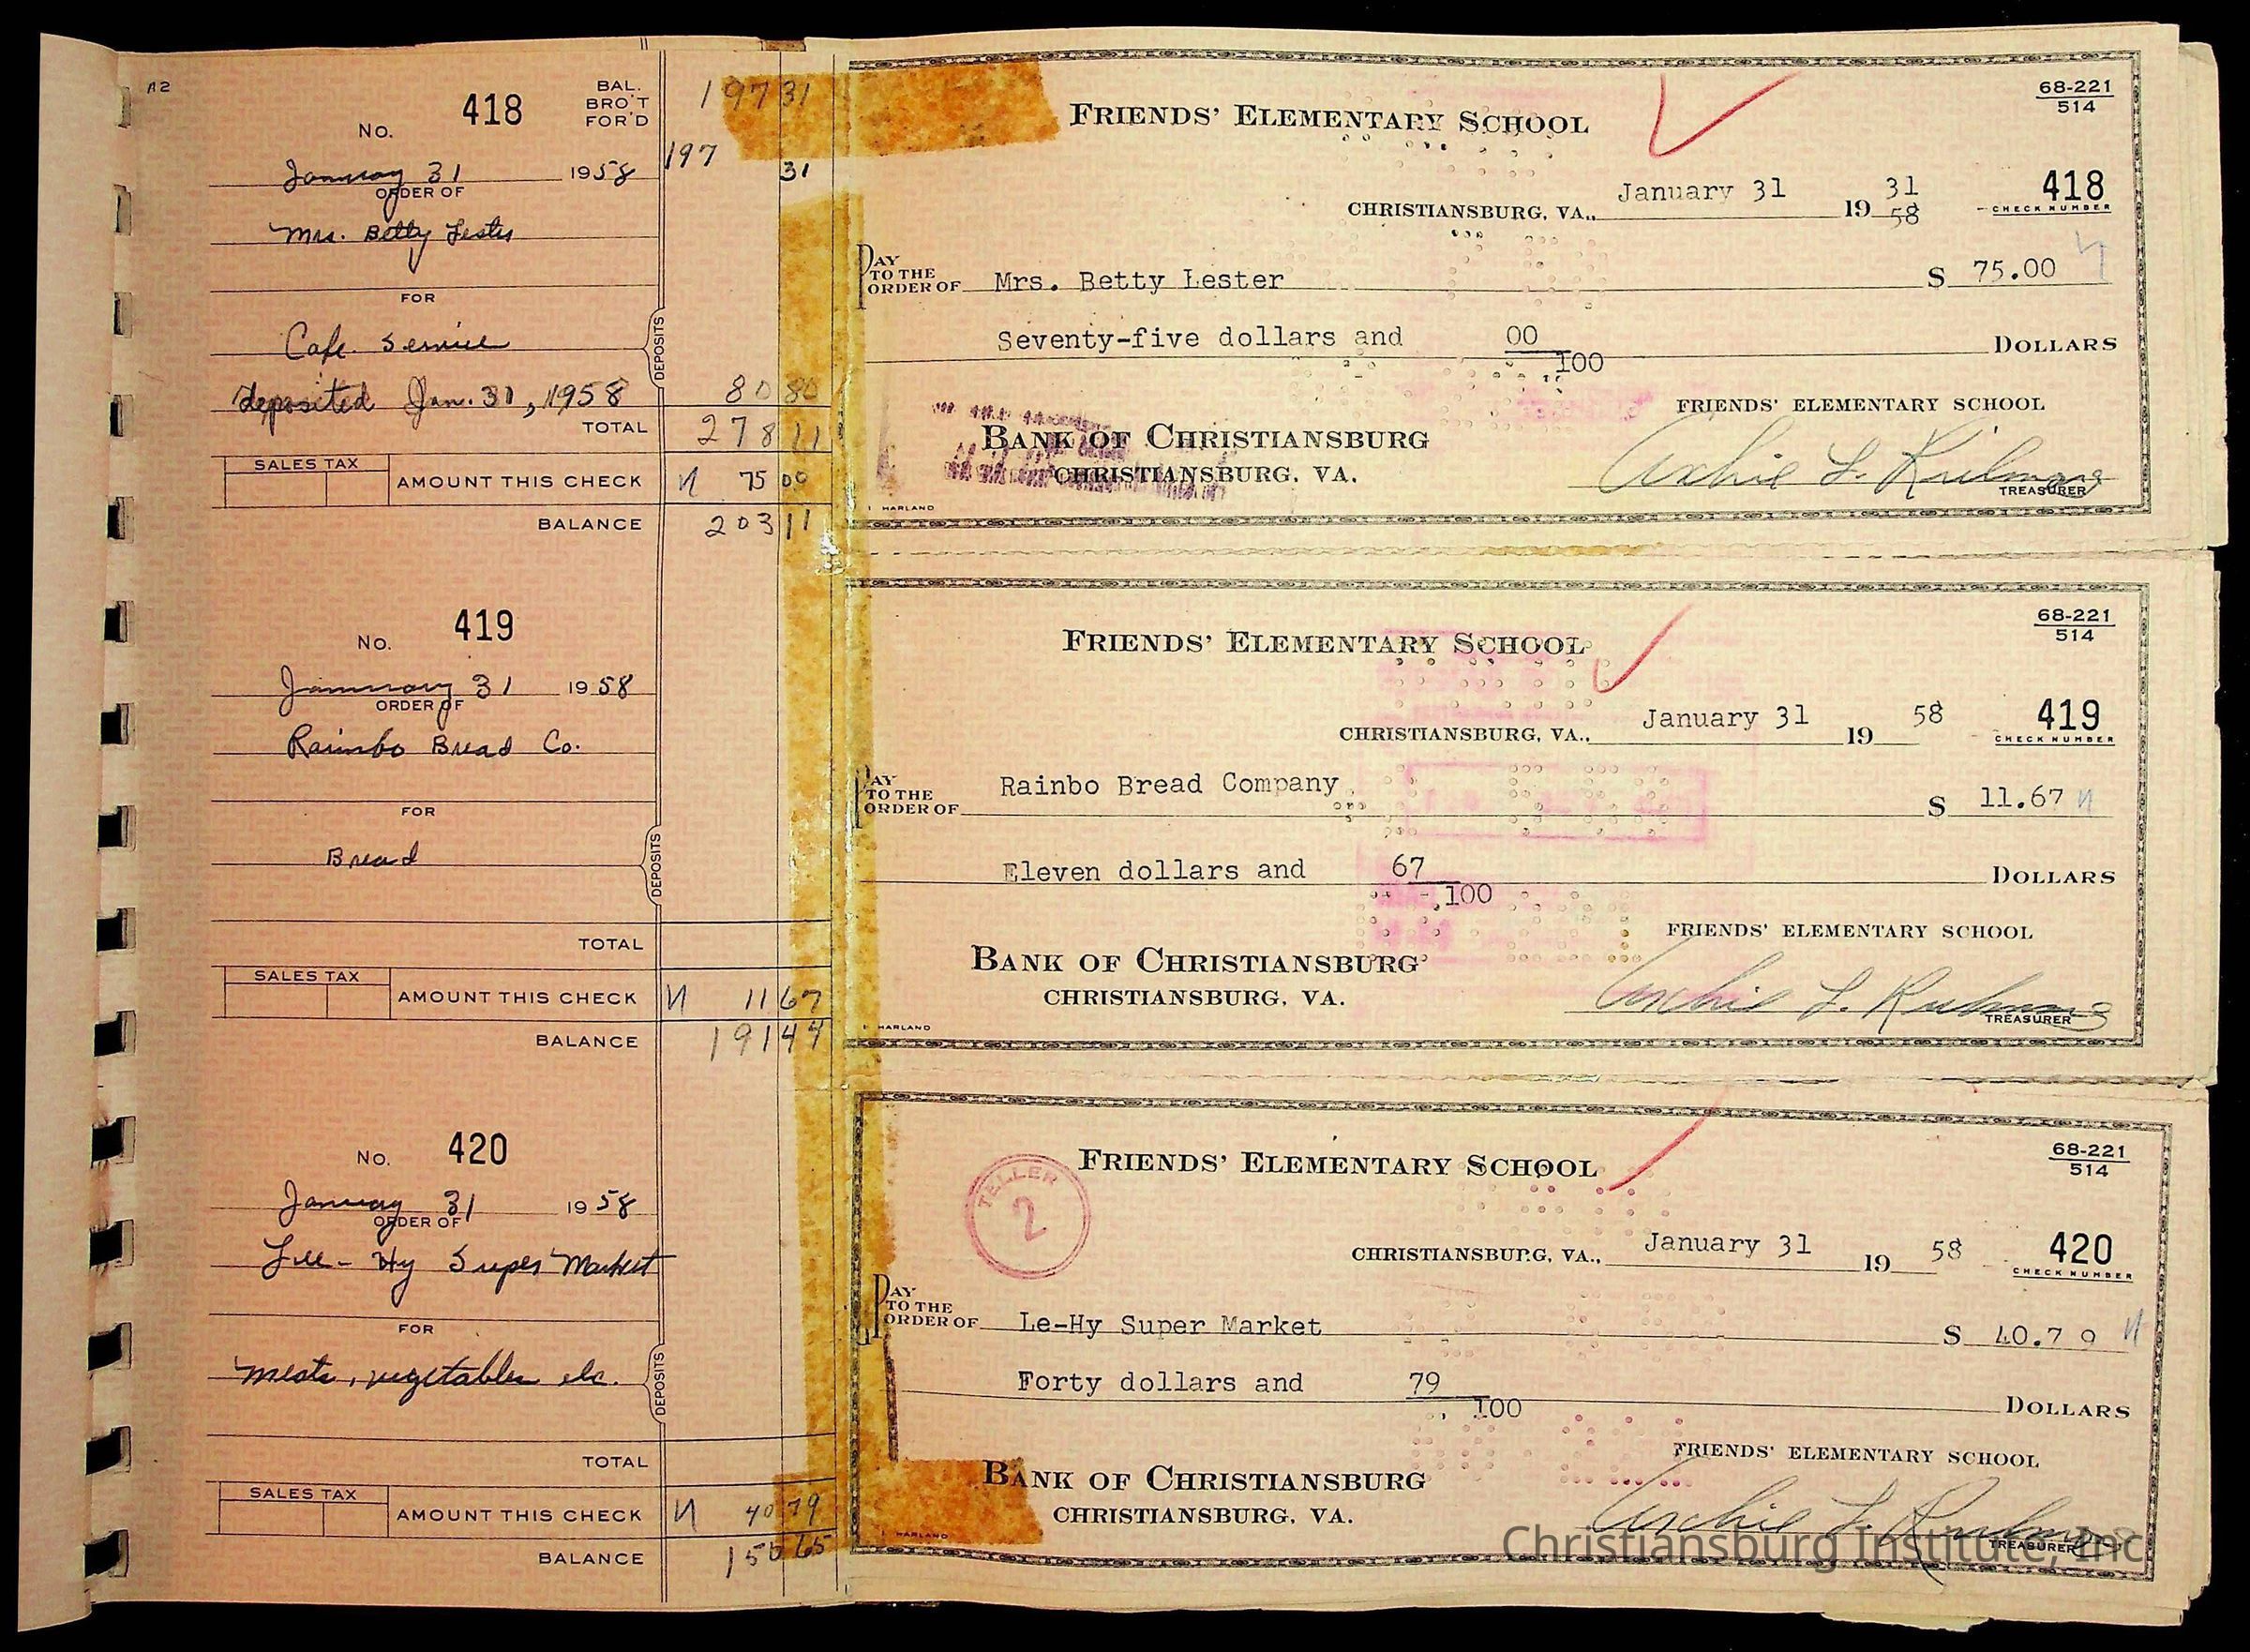 A2
No. 418
BAL.
BRO'T
FOR'D
197 31
197 31
January 31 1958
ORDER OF
Mrs. Betty Lester
FOR
Cafe. Service
DEPOSITS
deposited Jan. 31, 1958 80 80
TOTAL 278 11
SALES TAX
AMOUNT THIS CHECK 75 00
BALANCE 203 11
FRIENDS' ELEMENTARY SCHOOL
68-221
514
CHRISTIANSBURG, VA., January 31 19 31
58
418
CHECK NUMBER
PAY
TO THE
ORDER OF Mrs. Betty Lester $ 75.00
Seventy-five dollars and 00
100 DOLLARS
FRIENDS' ELEMENTARY SCHOOL
BANK OF CHRISTIANSBURG
CHRISTIANSBURG, VA.
Archie L.
TREASURER
HARLAND
No. 419
January 31 1958
ORDER OF
Rainbo Bread Co.
FOR
Bread
DEPOSITS
TOTAL
SALES TAX
AMOUNT THIS CHECK 11 67
BALANCE 191 44
FRIENDS' ELEMENTARY SCHOOL
68-221
514
CHRISTIANSBURG, VA., January 31 19 58
419
CHECK NUMBER
PAY
TO THE
ORDER OF Rainbo Bread Company $ 11.67
Eleven dollars and 67
100 DOLLARS
FRIENDS' ELEMENTARY SCHOOL
BANK OF CHRISTIANSBURG
CHRISTIANSBURG, VA.
Archie L.
TREASURER
HARLAND
No. 420
January 31 1958
ORDER OF
Lee-Hy Super Market
FOR
meats, vegetables etc.
DEPOSITS
TOTAL
SALES TAX
AMOUNT THIS CHECK 40 79
BALANCE 150 65
TELLER
2
FRIENDS' ELEMENTARY SCHOOL
68-221
514
CHRISTIANSBURG, VA., January 31 19 58
420
CHECK NUMBER
PAY
TO THE
ORDER OF Le-Hy Super Market $ 40.79
Forty dollars and 79
100 DOLLARS
FRIENDS' ELEMENTARY SCHOOL
BANK OF CHRISTIANSBURG
CHRISTIANSBURG, VA.
Archie L.
TREASURER
HARLAND
Christiansburg Institute, Inc